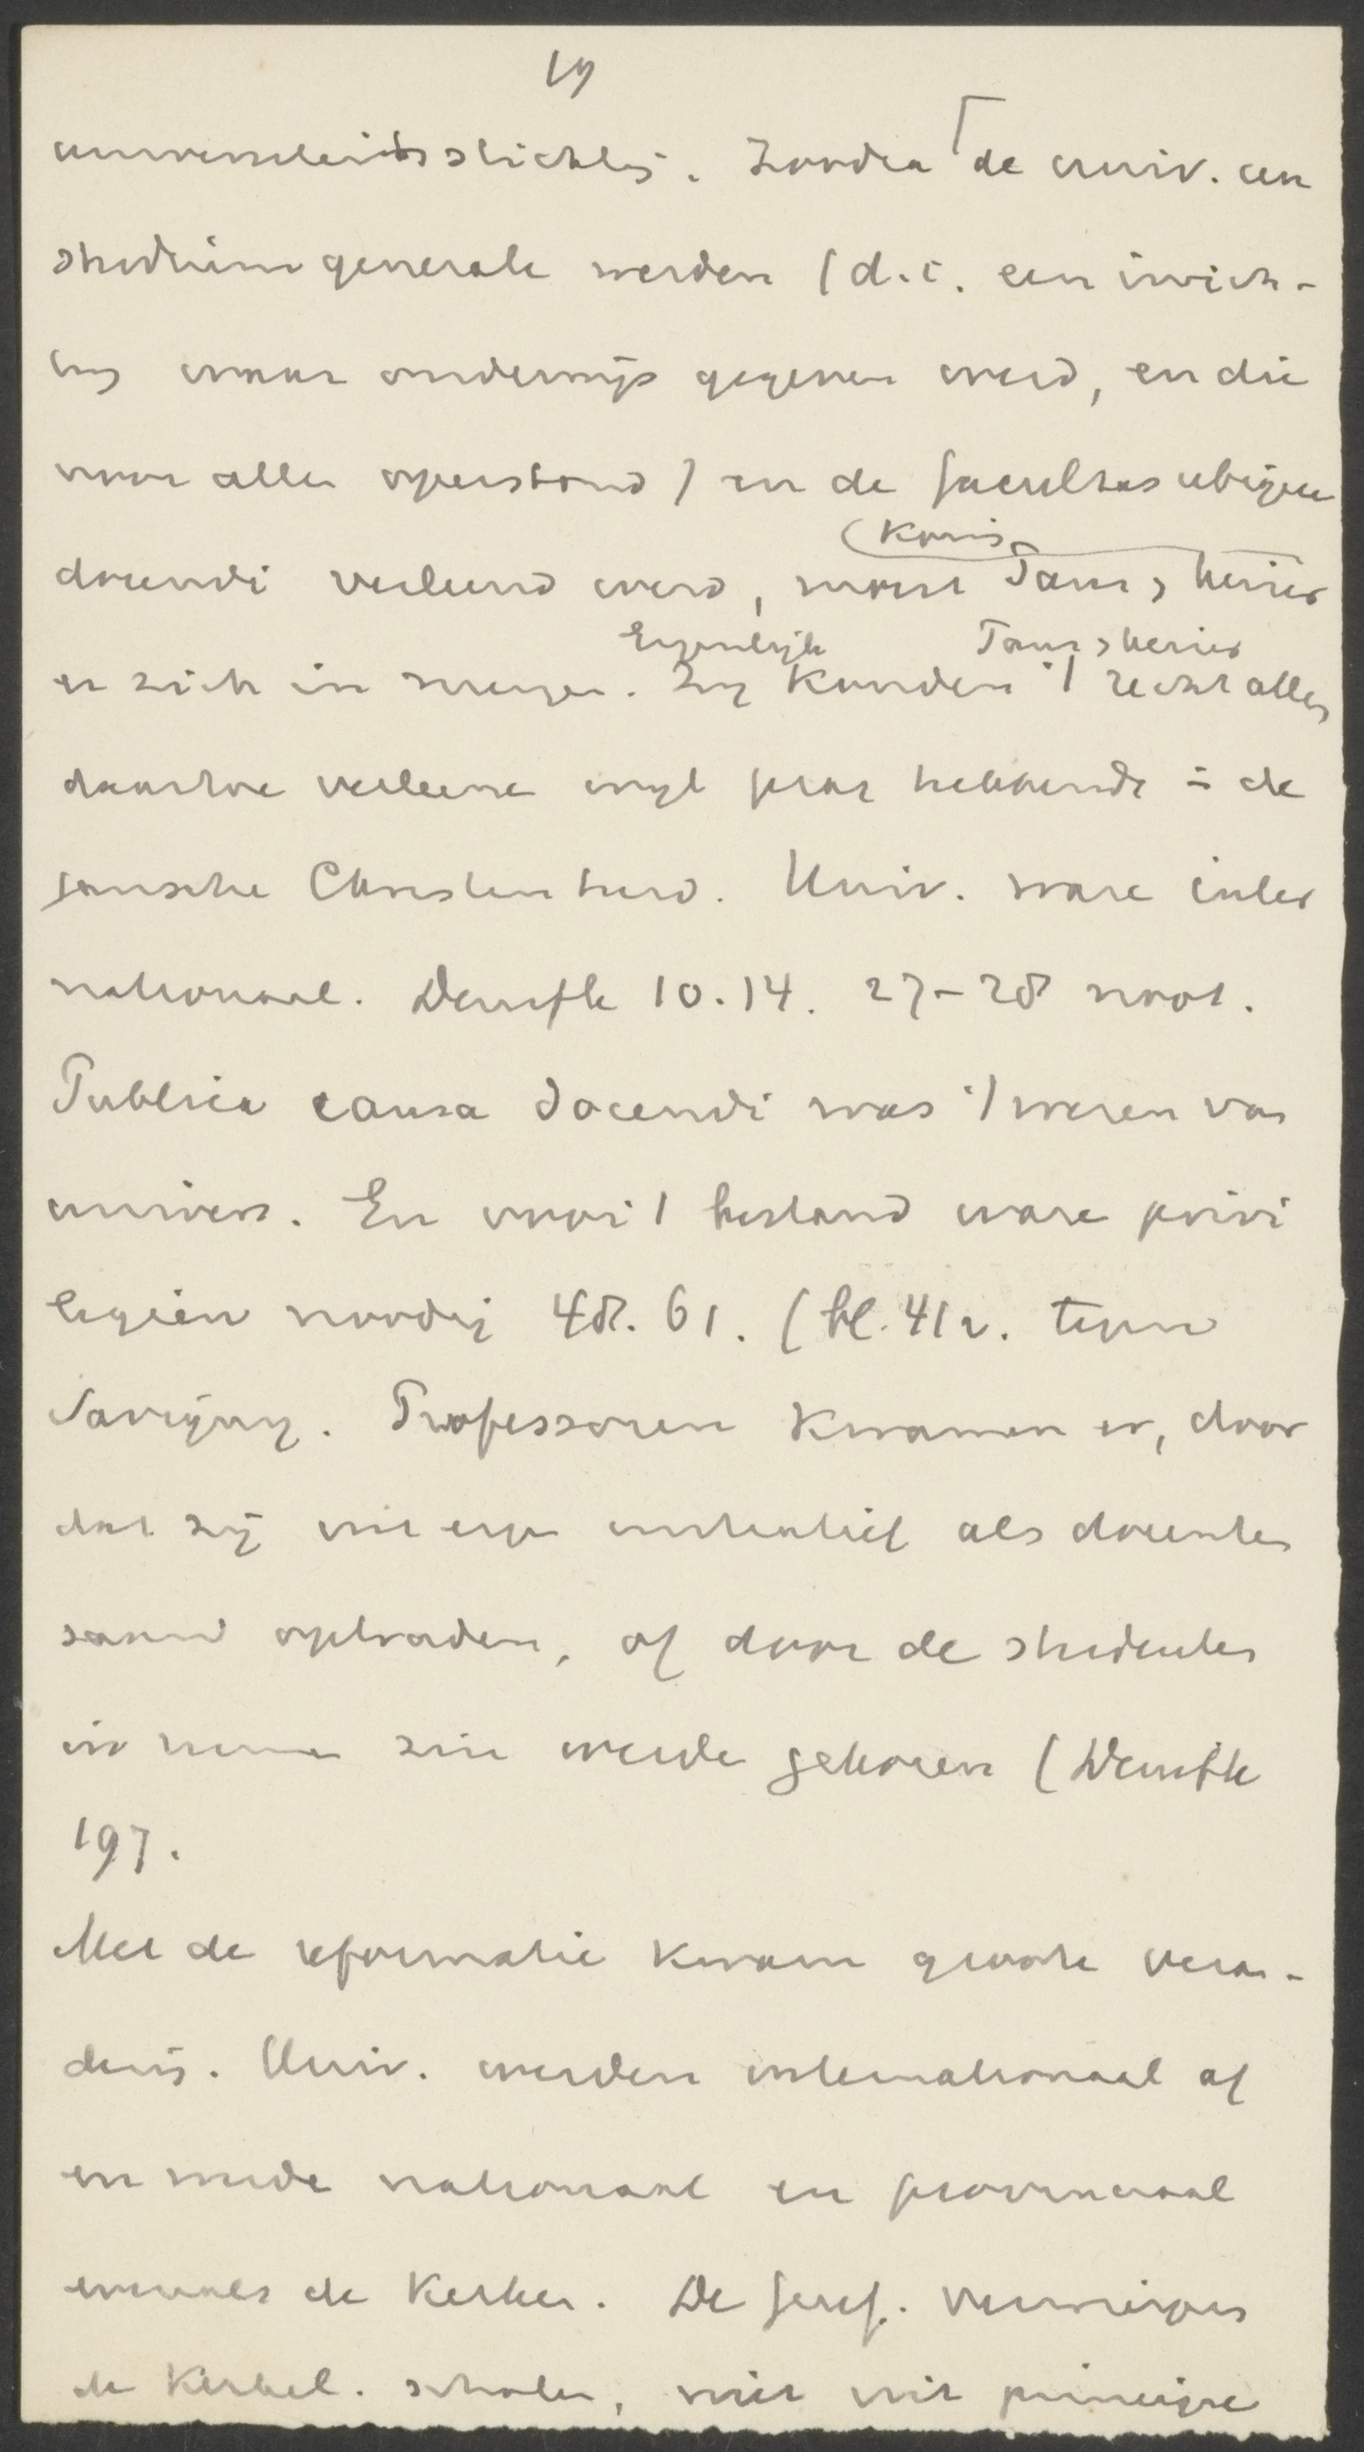 19
universiteitsstichting. Zoodra de univ. een
studium generale werden (d.i. een inrich-
ting waar onderwijs gegeven werd, en die
voor allen openstond) en de facultas ubique
Koning
docendi verleend werd, moest Paus, Keizer
Eigenlijk Paus, Keizer
er zich in mengen. Zy konden 't recht alleen
daartoe verleenen wyl gezag hebbende in de
gansche Christenheid. Univ. ware inter
nationaal. Denifle 10.14. 27-28 noot.
Publica causa docendi was 't wezen van
univers. En voor 't bestand ware privi
legiën noodig 48. 61. (bl. 412. tegen
Savigny. Professoren kwamen er, door
dat zij uit eigen initiatief als docenten
optraden, of door de studenten
in zin werden gekozen (Denifle
197.
Met de reformatie kwam groote veran-
dering. Univ. werden internationaal af
en mede nationaal en provinciaal
evenals de Kerken. De Geref.
de Kerkel. scholen, niet uit principe